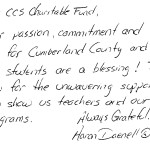 CCS Charitable Fund,
r passion, commitment and
for Cumberland County and
students are a blessing! T
u for the unwavering suppo
show us teachers and our
grams.
Always Grateful,
Aaron